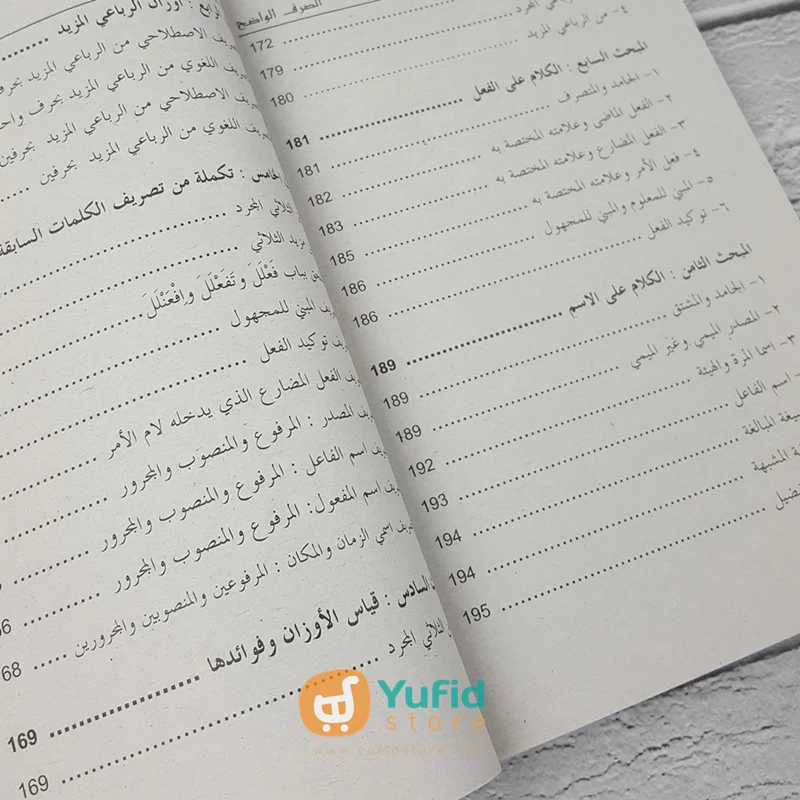 الرابع : أوزان الرباعي المزيد
تعريف الاصطلاحي من الرباعي المزيد بحرف
تعريف اللغوي من الرباعي المزيد بحرف واحد
تعريف الاصطلاحي من الرباعي المزيد بحرفين
تعريف اللغوي من الرباعي المزيد بحرفين
الخامس : تكملة من تصريف الكلمات السابقة
الثلاثي المجرد
مزيد الثلاثي
بباب فَعْلَلَ وتَفَعْلَلَ وافْعَنْلَلَ
المبني للمجهول
توكيد الفعل
الفعل المضارع الذي يدخله لام الأمر
المصدر : المرفوع والمنصوب والمجرور
اسم الفاعل : المرفوع والمنصوب والمجرور
اسم المفعول: المرفوع والمنصوب والمجرور 66
اسمي الزمان والمكان : المرفوعين والمنصوبين والمجرورين 68
السادس : قياس الأوزان وفوائدها 169
الثلاثي المجرد 169
الصرف الواضح
172
المجرد 179
٤- من الرباعي المزيد 180
المبحث السابع : الكلام على الفعل 181
١- الجامد والمتصرف 181
٢- الفعل الماضي وعلامته المختصة به 182
٣- الفعل المضارع وعلامته المختصة به 183
٤- فعل الأمر وعلامته المختصة به 185
٥- المبني للمعلوم والمبني للمجهول 186
٦- توكيد الفعل 186
المبحث الثامن : الكلام على الاسم 189
١- الجامد والمشتق 189
٢- المصدر الميمي وغير الميمي 189
٣- اسما المرة والهيئة 192
اسم الفاعل 193
صيغة المبالغة 194
المشبهة 194
195
Yufid
store
www.yufidstore.com